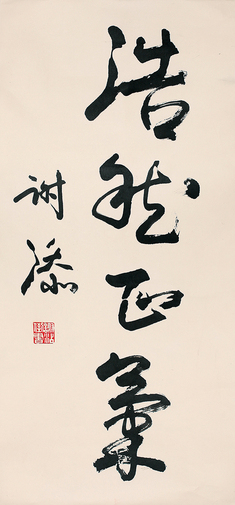 浩然正氣
谢添